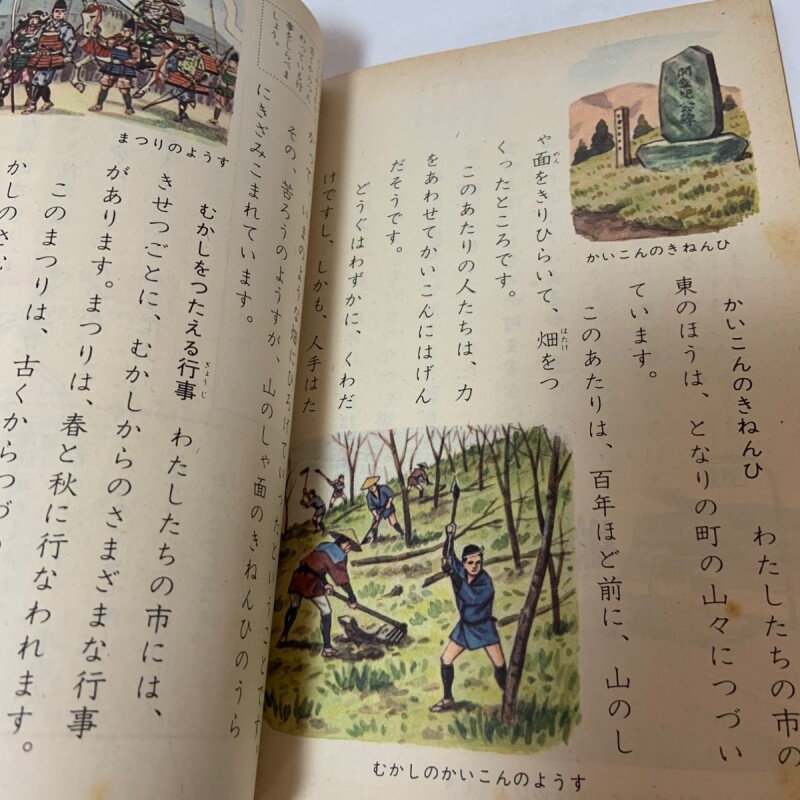 かいこんのきねんひ
かいこんのきねんひ　わたしたちの市の
東のほうは、となりの町の山々につづい
ています。
このあたりは、百年ほど前に、山のし
や面をきりひらいて、畑をつ
めん
はたけ
くったところです。
このあたりの人たちは、力
をあわせてかいこんにはげん
だそうです。
どうぐはわずかに、くわだ
けですし、しかも、人手はた
むかしのかいこんのようす
いまのような畑にひろげていったということです。
その、苦ろうのようすが、山のしゃ面のきねんひのうら
にきざみこまれています。
まつりのようす
むかしをつたえる行事　わたしたちの市には、
ぎょうじ
きせつごとに、むかしからのさまざまな行事
があります。まつりは、春と秋に行なわれます。
このまつりは、古くからつづ
わっている行
事をしらべま
しょう。